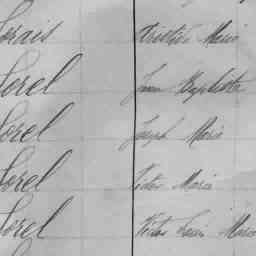 Sorais Aristide Marie
Sorel Jean Baptiste
Sorel Joseph Marie
Sorel Victor Marie
Sorel Victor Louis Marie